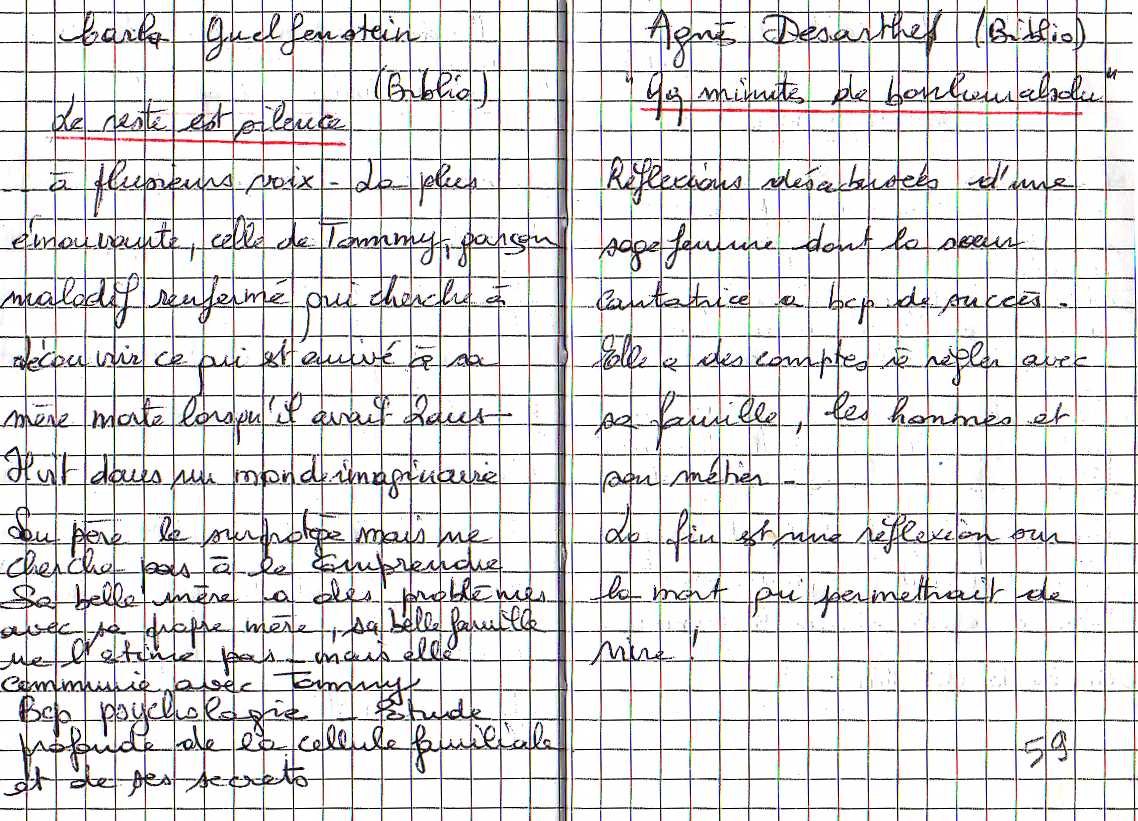 Carla Guelfenstein
(Biblio)
Le reste est silence
à plusieurs voix - La plus
émouvante, celle de Tommy, garçon
maladif renfermé qui cherche à
découvrir ce qui est arrivé à sa
mère morte lorsqu'il avait 2 ans -
Il vit dans un monde imaginaire
Son père le surprotège mais ne
cherche pas à le comprendre
Sa belle mère a des problèmes
avec sa propre mère, sa belle famille
ne l'estime pas - mais elle
communie avec Tommy
Bcp psychologie - Etude
profonde de la cellule familiale
et de ses secrets
Agnès Desarthes (Biblio)
"99 minutes de bonheur absolu"
Réflexions désabusées d'une
sage femme dont la soeur
Cantatrice a bcp de succès -
Elle a des comptes à régler avec
sa famille, les hommes et
son métier -
La fin est une réflexion sur
la mort qui permettrait de
vivre !
59